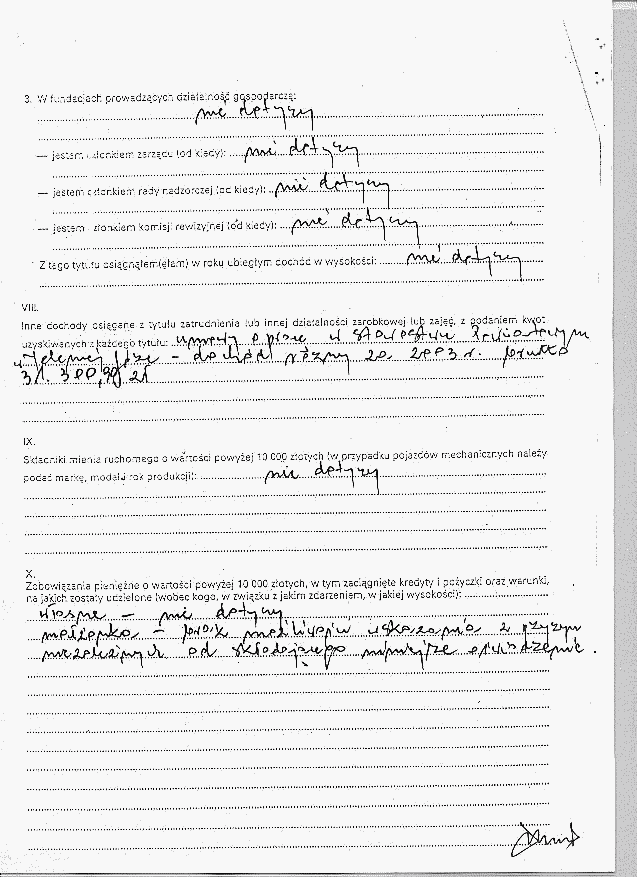 3. W fundacjach prowadzących działalność gospodarczą:
nie dotyczy
— jestem członkiem zarządu (od kiedy): nie dotyczy
— jestem członkiem rady nadzorczej (od kiedy): nie dotyczy
— jestem członkiem komisji rewizyjnej (od kiedy): nie dotyczy
Z tego tytułu osiągnąłem(ęłam) w roku ubiegłym dochód w wysokości: nie dotyczy
VIII.
Inne dochody osiągane z tytułu zatrudnienia lub innej działalności zarobkowej lub zajęć, z podaniem kwot
uzyskiwanych z każdego tytułu: umowy o pracę w Starostwie Powiatowym
w Jeleniej Górze – dochód roczny za 2003 r. brutto
31.300,90 zł
IX.
Składniki mienia ruchomego o wartości powyżej 10 000 złotych (w przypadku pojazdów mechanicznych należy
podać markę, model i rok produkcji): nie dotyczy
X.
Zobowiązania pieniężne o wartości powyżej 10 000 złotych, w tym zaciągnięte kredyty i pożyczki oraz warunki,
na jakich zostały udzielone (wobec kogo, w związku z jakim zdarzeniem, w jakiej wysokości):
własne – nie dotyczy
małżonka – brak możliwości wskazania z przyczyn
niezależnych od składającego niniejsze oświadczenie.